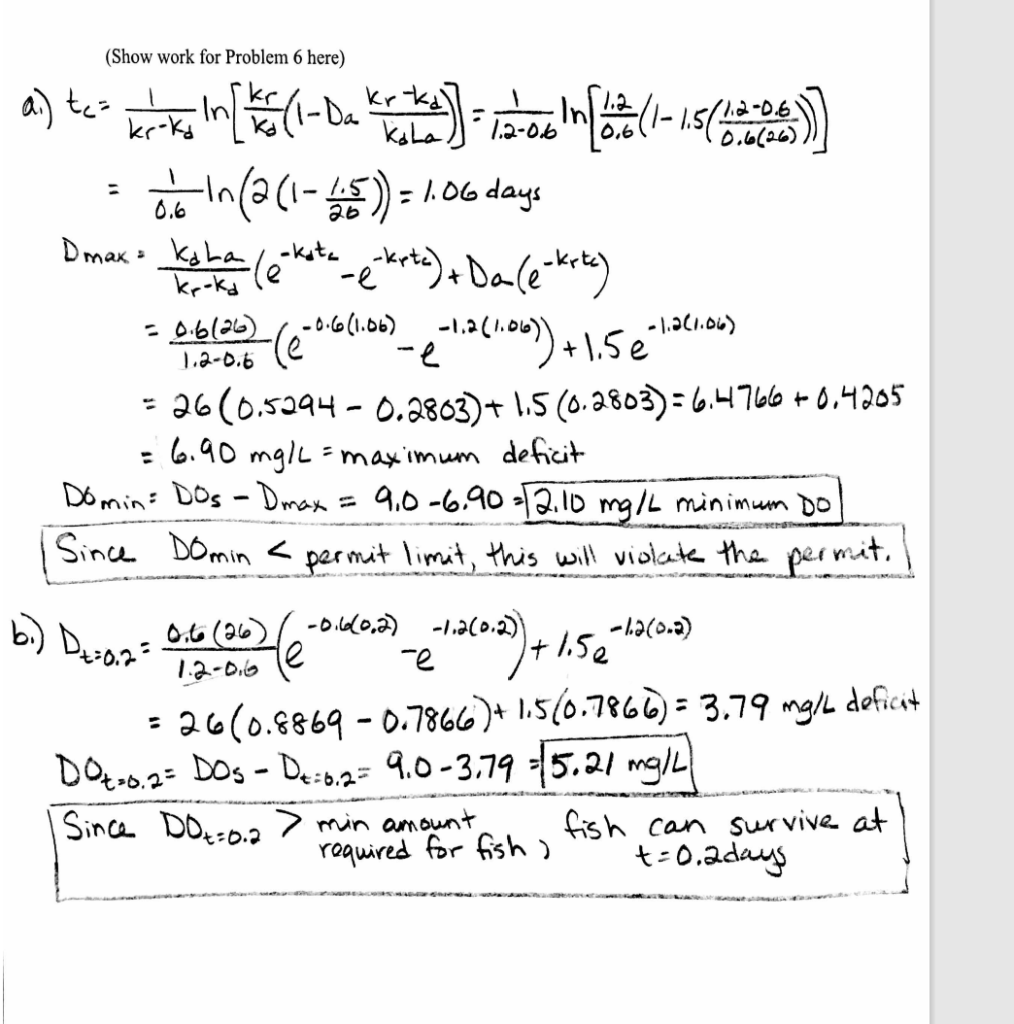 (Show work for Problem 6 here)
a.) tc = 1/(kr-kd) ln[kr/kd (1-Da (kr-kd)/(kdLa))] = 1/(1.2-0.6) ln[1.2/0.6 (1-1.5((1.2-0.6)/(0.6(26))))]
= 1/0.6 ln(2(1-1.5/26)) = 1.06 days
Dmax = kdLa/(kr-kd) (e^-kdtc - e^-krtc) + Da(e^-krtc)
= 0.6(26)/(1.2-0.6) (e^-0.6(1.06) - e^-1.2(1.06)) + 1.5e^-1.2(1.06)
= 26(0.5294 - 0.2803) + 1.5(0.2803) = 6.4766 + 0.4205
= 6.90 mg/L = maximum deficit
DOmin = DOs - Dmax = 9.0 - 6.90 = 2.10 mg/L minimum DO
Since DOmin < permit limit, this will violate the permit.
b.) Dt=0.2 = 0.6(26)/(1.2-0.6) (e^-0.6(0.2) - e^-1.2(0.2)) + 1.5e^-1.2(0.2)
= 26(0.8869 - 0.7866) + 1.5(0.7866) = 3.79 mg/L deficit
DOt=0.2 = DOs - Dt=0.2 = 9.0 - 3.79 = 5.21 mg/L
Since DOt=0.2 > min amount required for fish, fish can survive at
t=0.2days